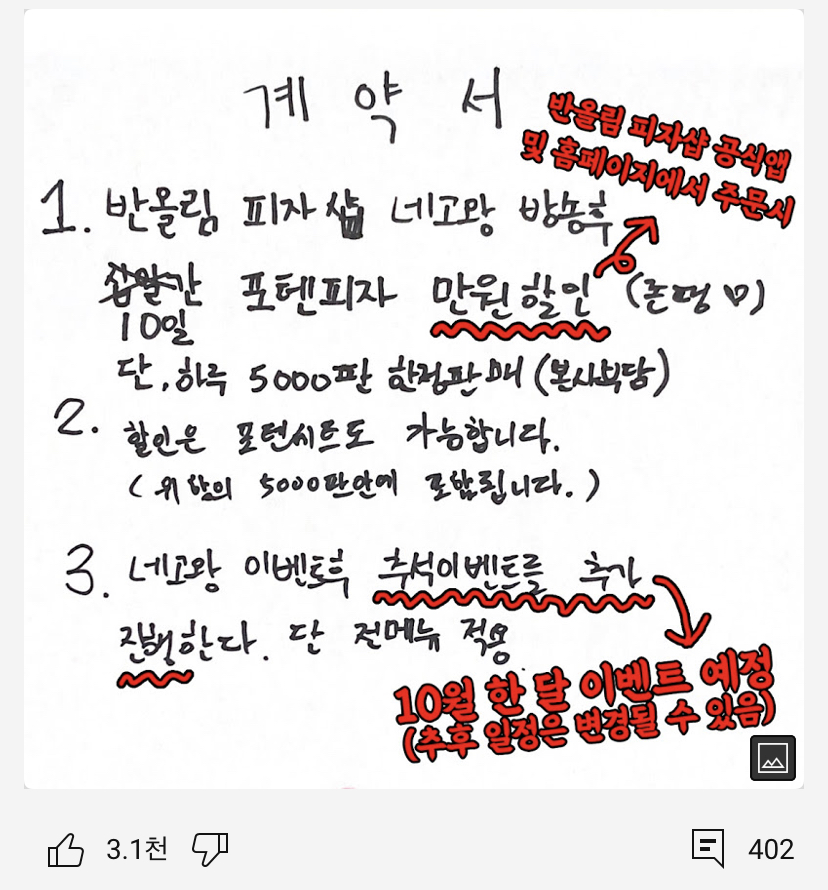 계약서
반올림 피자샵 공식앱
및 홈페이지에서 주문시
1. 반올림 피자샵 네고왕 방송후
포텐피자 만원할인 (존멋♡)
10일
단, 하루 5000판 한정판매 (본사부담)
2. 할인은 포텐세트도 가능합니다.
( 위 5000판안에 포함됩니다. )
3. 네고왕 이벤트후 추석이벤트를 추가
진행한다. 단 전메뉴 적용
10월 한 달 이벤트 예정
(추후 일정은 변경될 수 있음)
3.1천
402